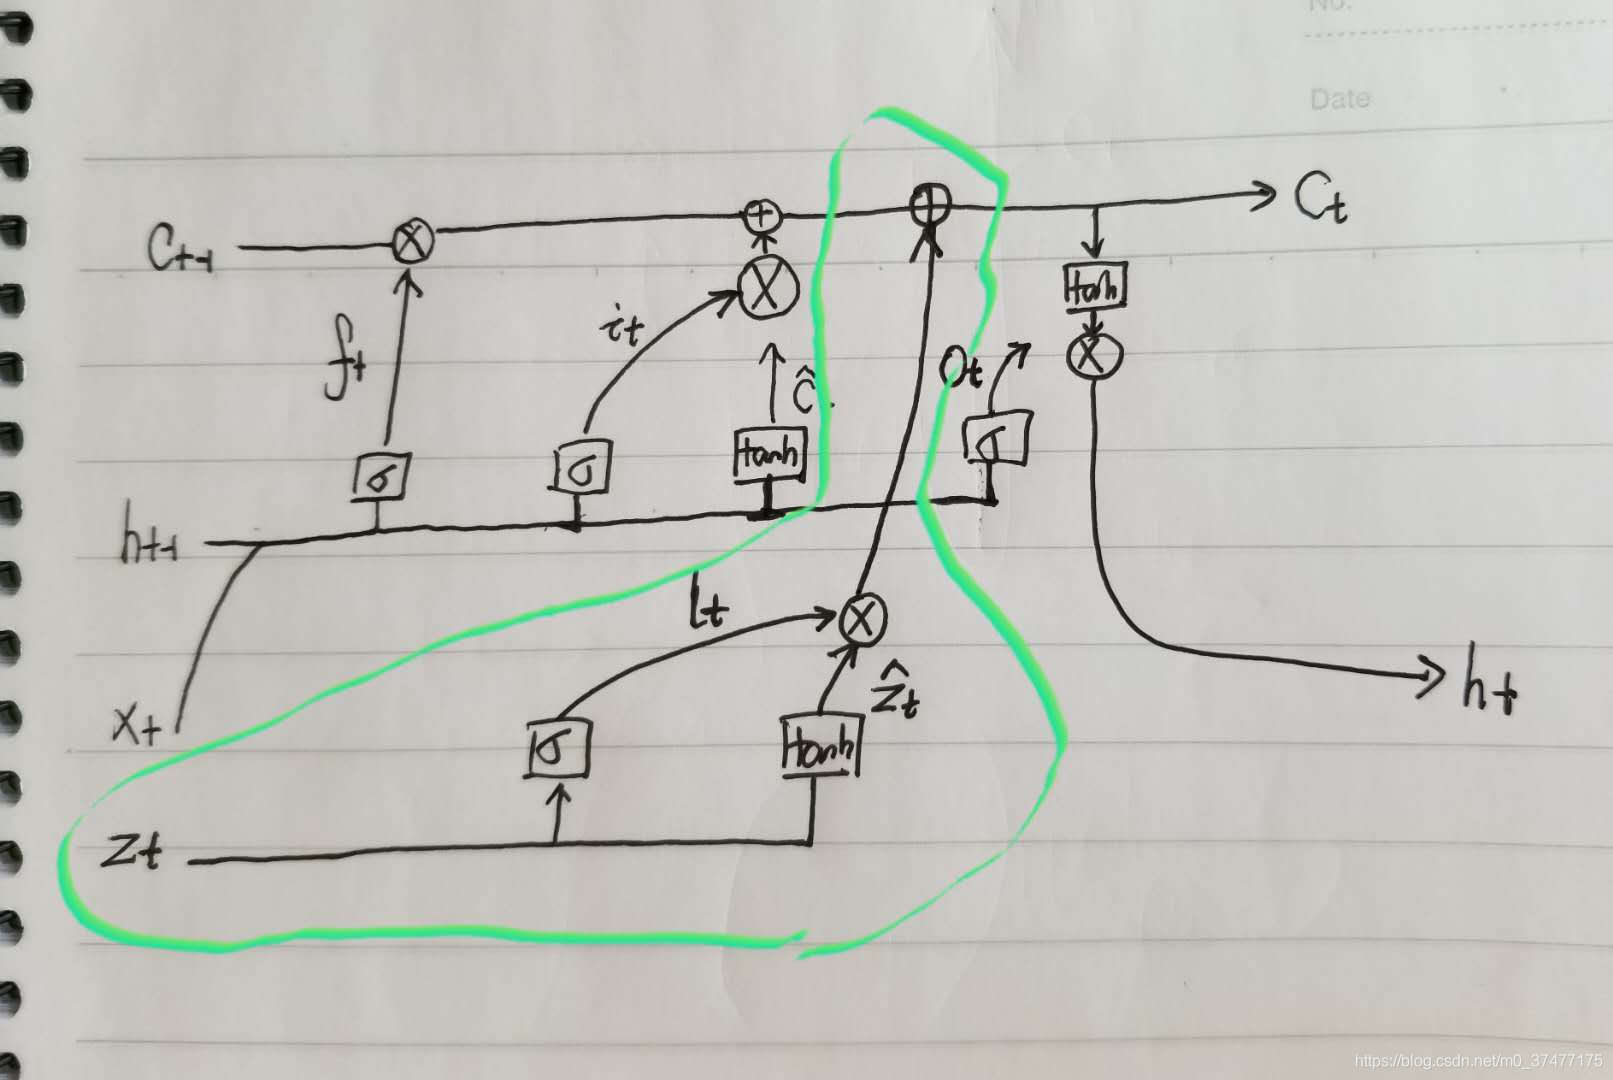 No.
Date
Ct
Ct-1
+
X
X
tanh
it
ft
Ĉ
Ot
X
tanh
σ
σ
σ
ht-1
lt
X
Ẑt
ht
Xt
σ
tanh
Zt
https://blog.csdn.net/m0_37477175